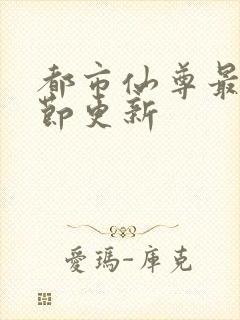 都市仙尊最
節更新
愛瑪-庫克